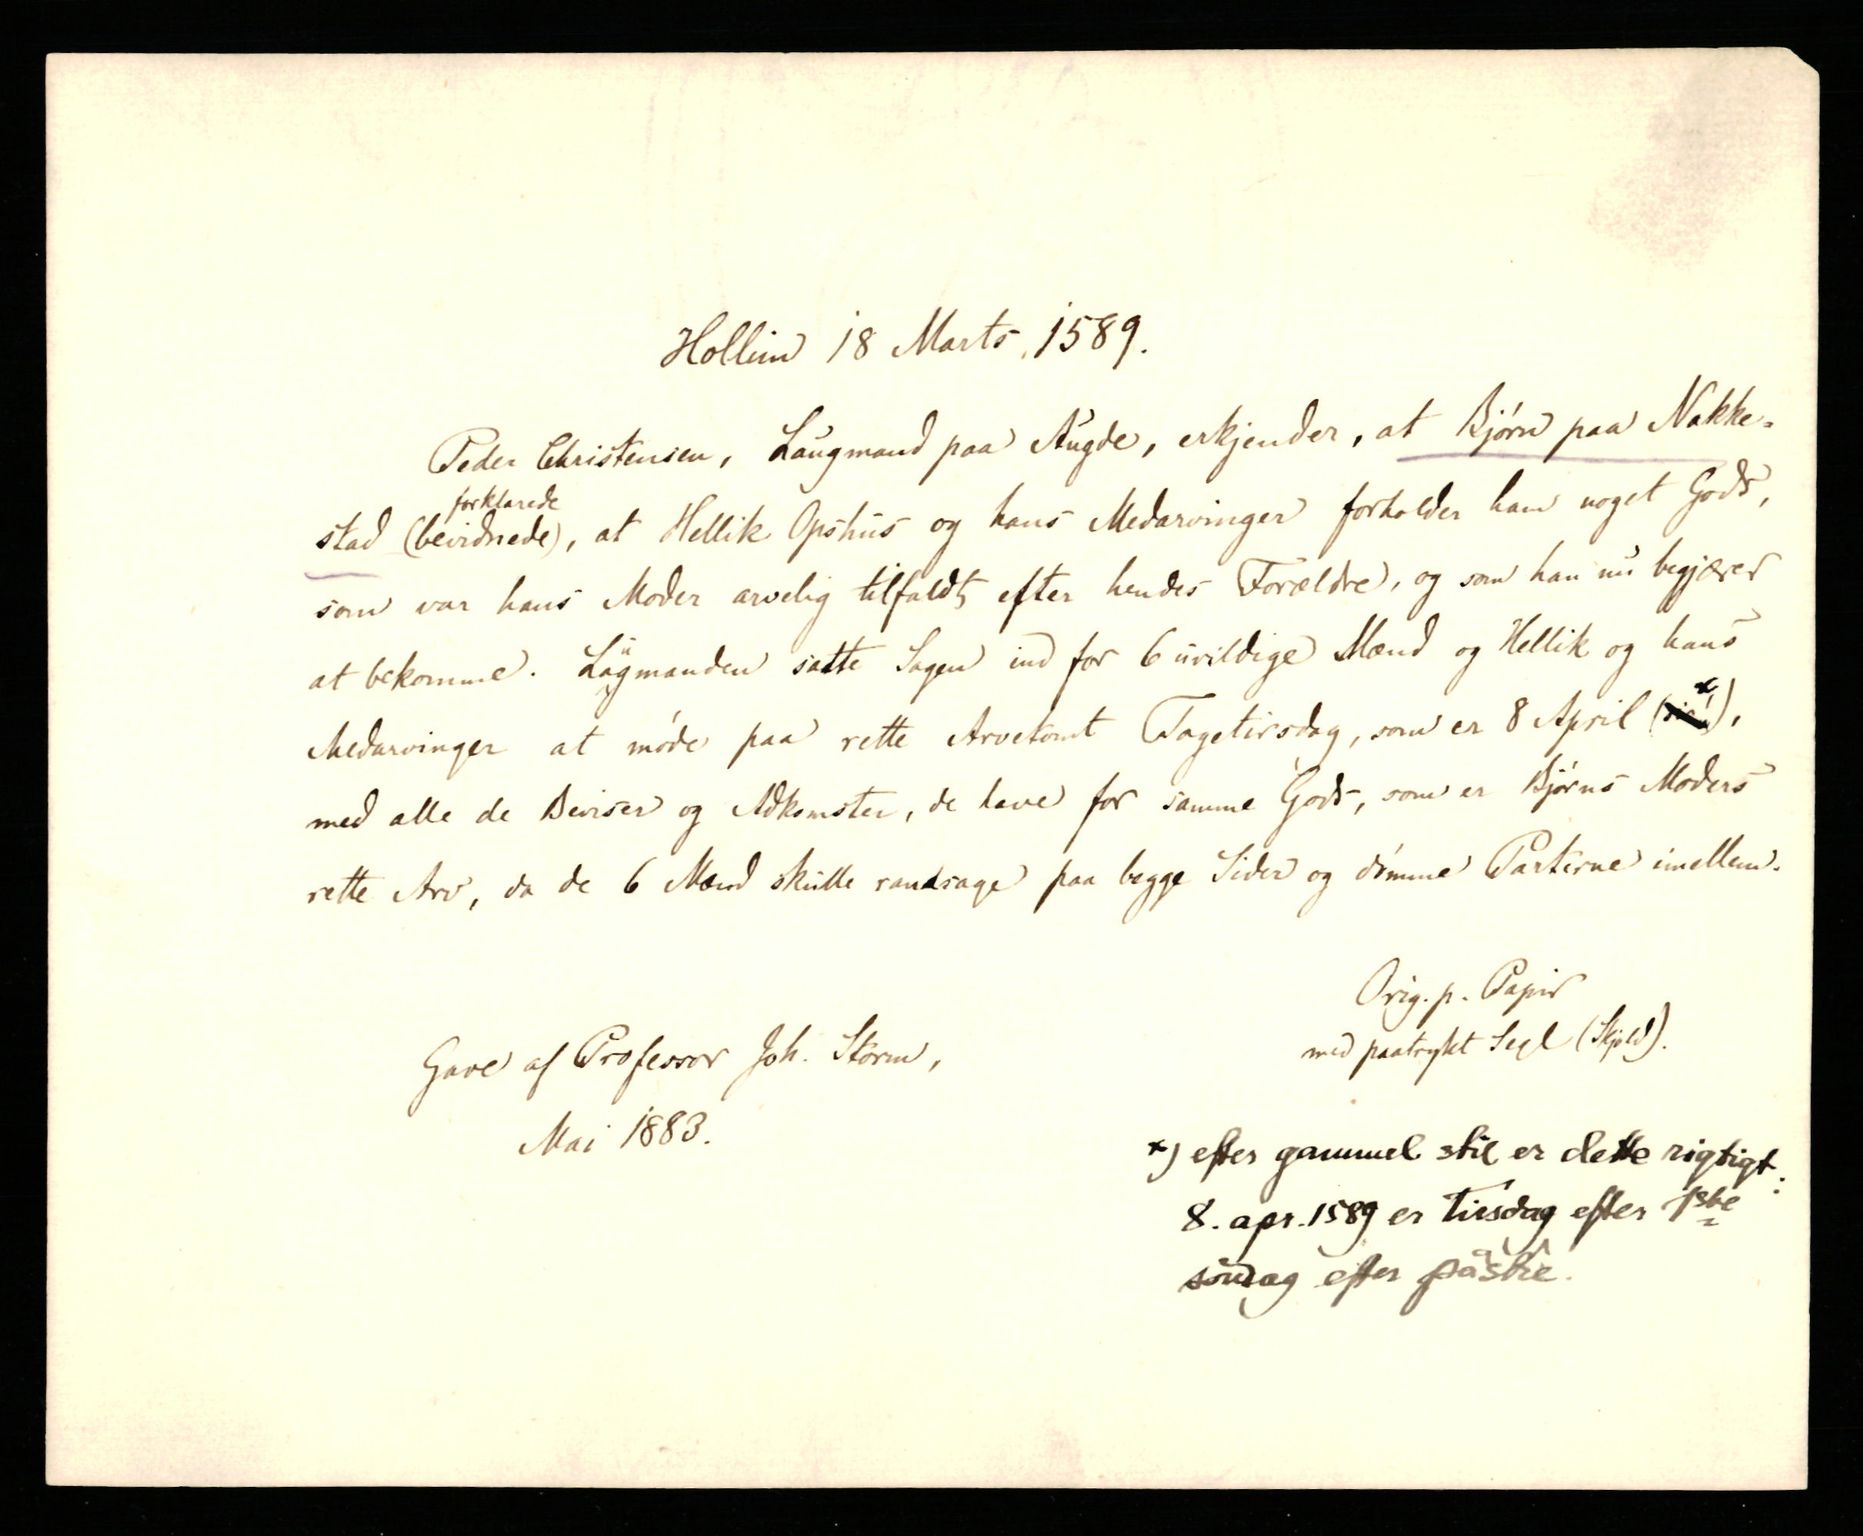 Hollim 18 Marts 1589.
Peder Christensen, Laugmand paa Augde, erkjender, at Bjørn paa Nakke-
forklarede
stad (bevidnede), at Hellik Opshus og hans Medarvinger forholder ham noget Gods,
som var hans Moder arvelig tilfaldt efter hendes Forældre, og som han nu begjærer
at bekomme. Lagmanden satte Sagen ind for 6 uvildige Mænd og Hellik og hans
Medarvinger at møde paa rette Arvetomt Fagetirsdag, som er 8 April (x),
med alle de Beviser og Adkomster, de have for samme Gods, som er Bjørns Moders
rette Arv, da de 6 Mænd skulle randsage paa begge Sider og dømme Parterne imellem.
Orig. p. Papir
med paatrykt Segl (Skjold).
Gave af Professor Joh. Storm,
Mai 1883.
x) efter gammel stil er dette rigtigt:
8. apr. 1589 er Tirsdag efter 1ste
søndag efter påske.